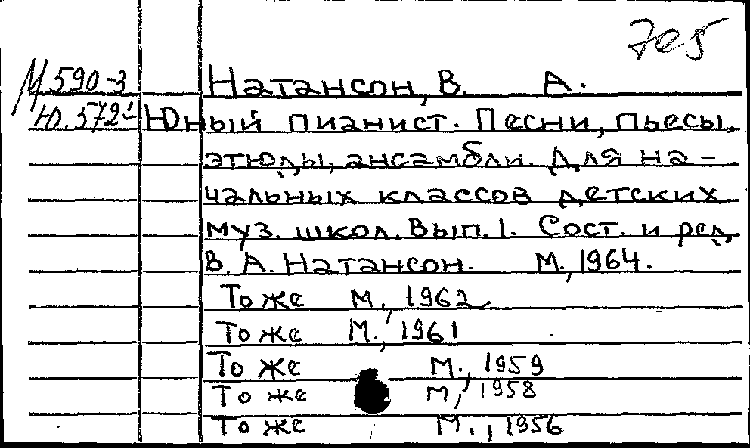 705
М590-3 Натансон, В. А.
Ю.572¹ Юный пианист. Песни, пьесы,
этюды, ансамбли. Для на-
чальных классов детских
муз. школ. Вып. 1. Сост. и ред.
В. А. Натансон. М., 1964.
То же М., 1962
То же М., 1961
То же М., 1959
То же М, 1958
То же М., 1956